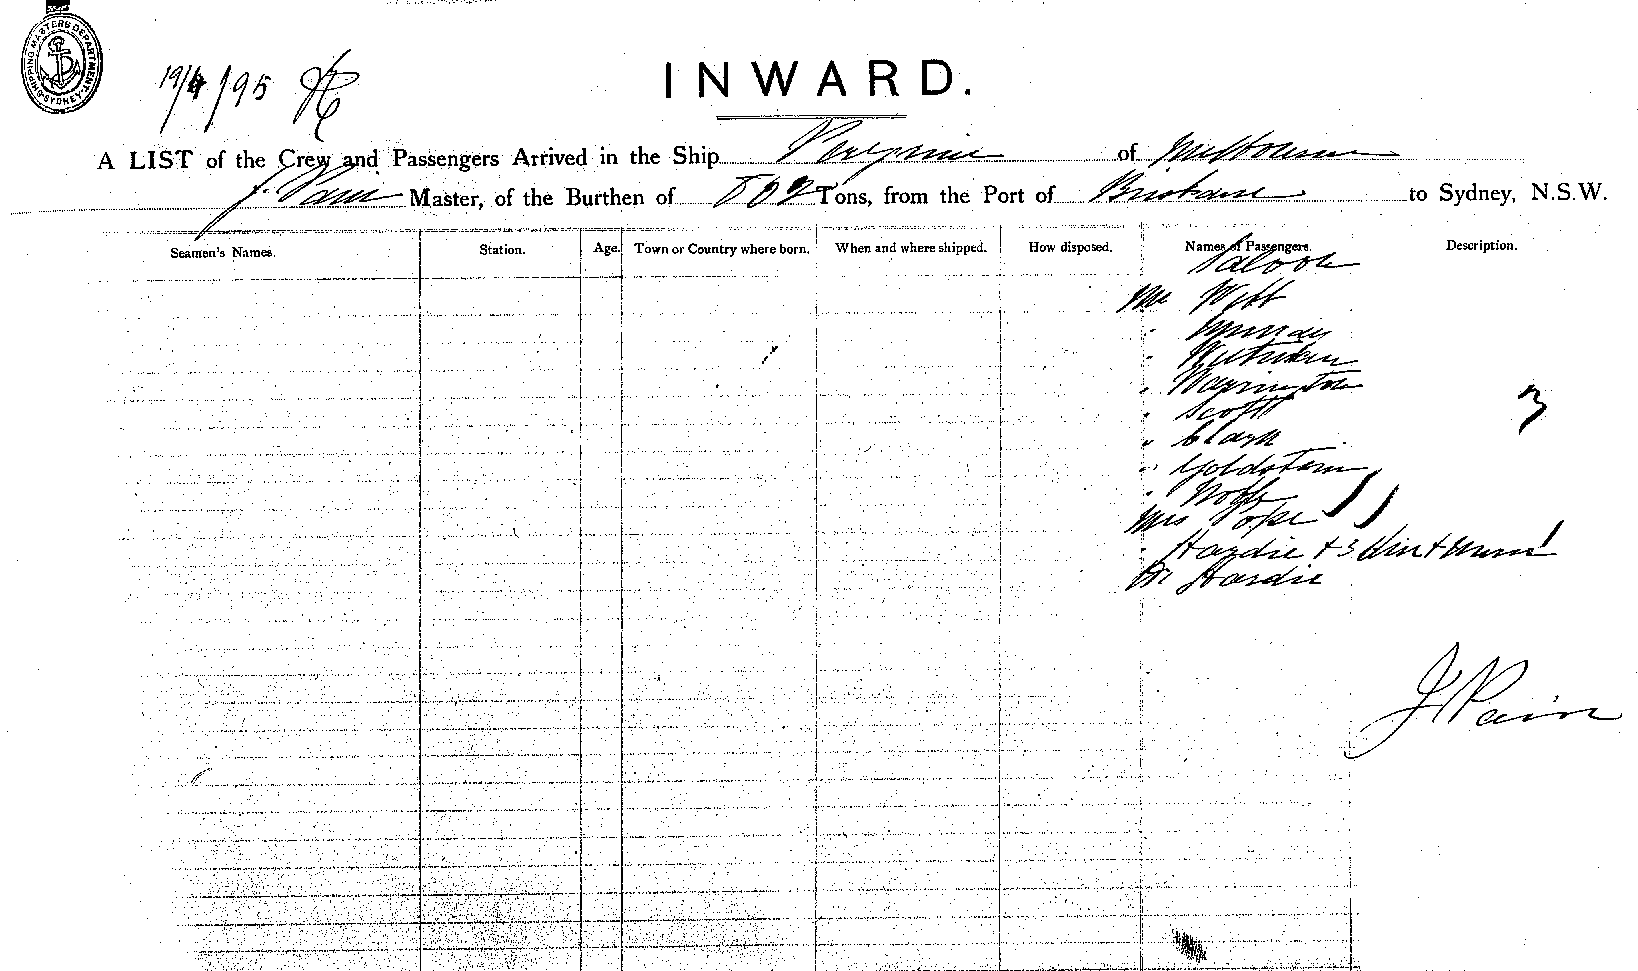 SHIPPING MASTERS DEPARTMENT SYDNEY
19/4/95
INWARD.
A LIST of the Crew and Passengers Arrived in the Ship Peregrine of Melbourne
J. Pain Master, of the Burthen of Tons, from the Port of Brisbane to Sydney, N.S.W.
Seamen's Names. Station. Age. Town or Country where born. When and where shipped. How disposed. Names of Passengers. Description.
Saloon
Mr Witt
" Munday
"
" Warrington
" Scott
" Clark
" Goldstein
"
Mrs Pope
" Hardie + 3
Dr Hardie
J Pain